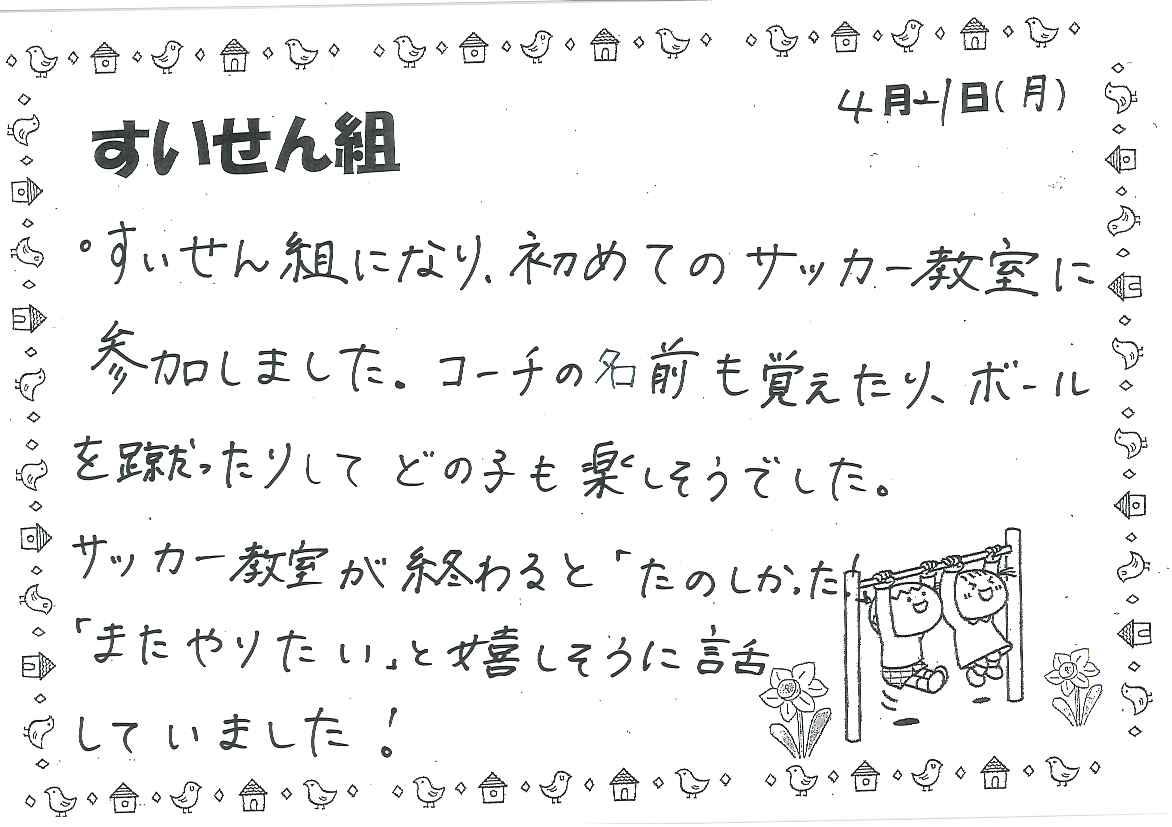 4月21日(月)
すいせん組
°すいせん組になり、初めてのサッカー教室に
参加しました。コーチの名前も覚えたり、ボール
を蹴だったりしてどの子も楽しそうでした。
サッカー教室が終わると「たのしかった!」
「またやりたい」と嬉しそうに話
していました!